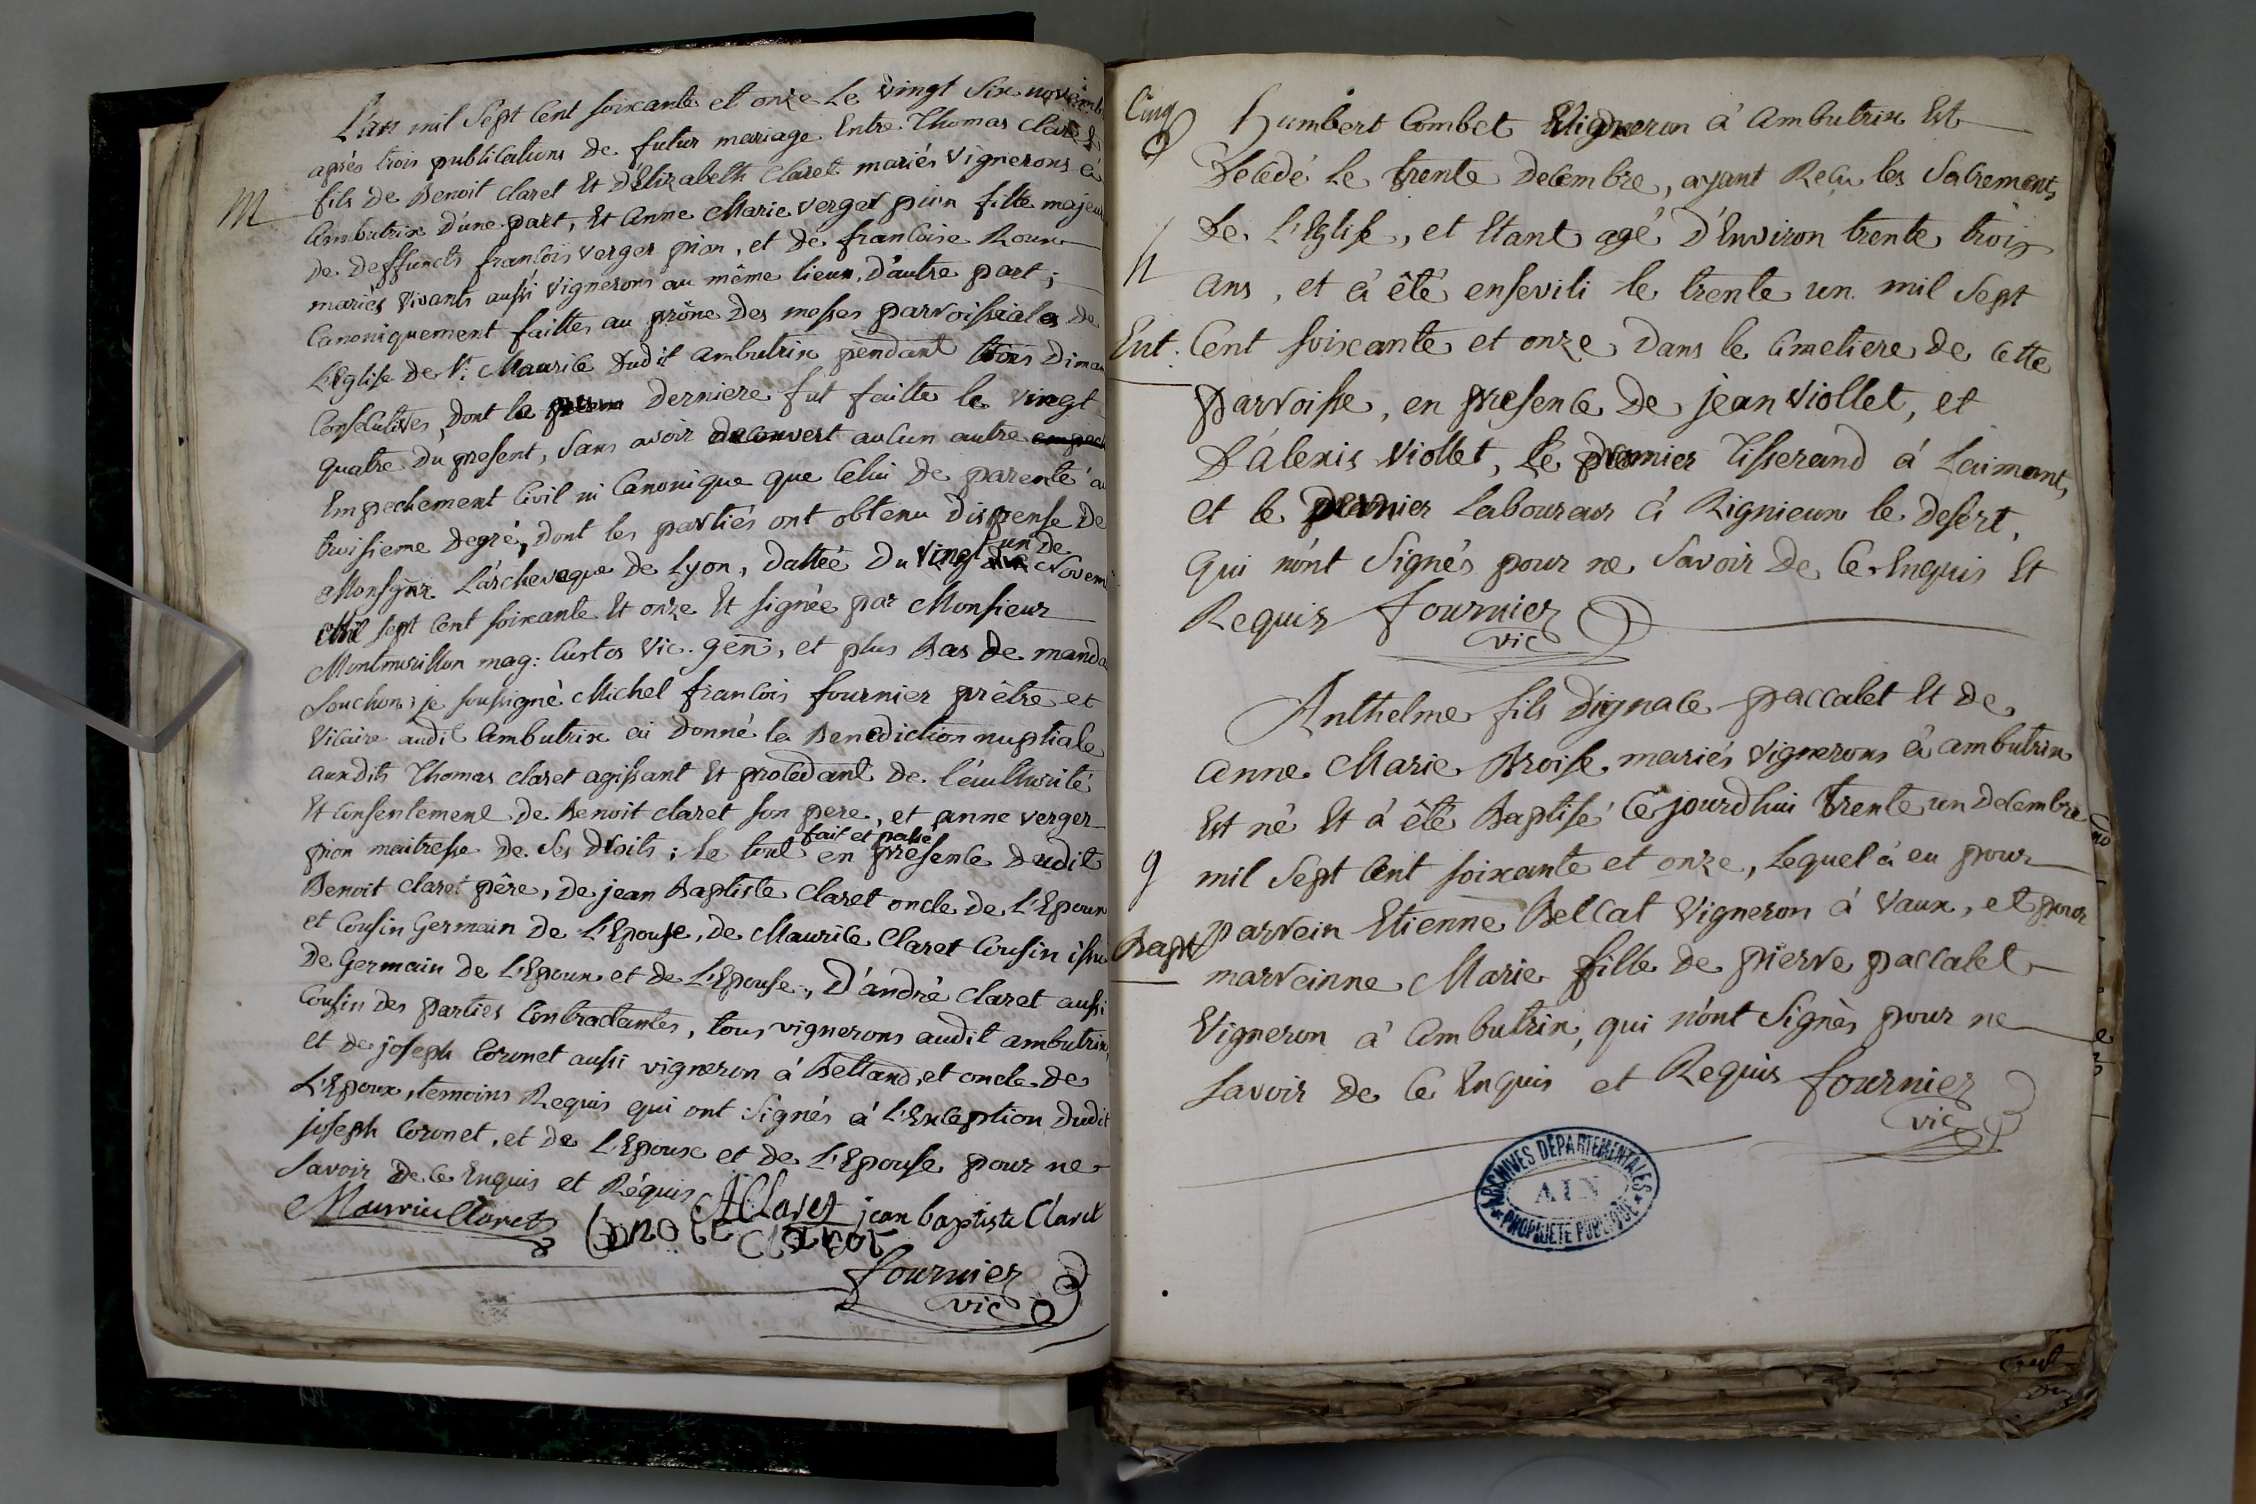 L'an mil Sept Cent soixante et onze Le vingt Six novembre
après trois publications de futur mariage Entre Thomas Claret
fils de Benoit Claret Et d'Elizabeth Claret mariés Vignerons à
M
Ambutrix D'une part, Et Anne Marie verger pion fille majeure
de deffuncts francois verger pion, et de francoise Roux
mariés vivants aussi vignerons au même lieux, D'autre part;
Canoniquement faittes au prône Des messes parroissiales de
L'Eglise de St. Maurice Dudit ambutrix pendant trois Diman
Consecutives, Dont la derniere fut faitte le vingt
quatre Du present, Sans avoir decouvert aucun autre
Empechement Civil ni Canonique que Celui de parenté au
troisieme degré, Dont les parties ont obtenu Dispense de
Monsgnr L'archeveque de Lyon, Dattée Du vingt un de Novem
Mil sept Cent soixante Et onze Et signée par Monsieur
Montmorillon mag: Custos Vic. gen, et plus Bas de manda
Souchon; je soussigné Michel francois fournier prêtre et
Vicaire audit Ambutrix ai Donné la Benediction nuptiale
auxdits Thomas claret agissant Et procedant de l'authorité
Et Consentement de Benoit claret son pere, et anne verger
pion maitresse de Ses Droits; le tout fait et passé en presence dudit
Benoit Claret pêre, de jean Baptiste Claret oncle de L'Epoux
et Cousin Germain de L'Epouse, de Maurice Claret Cousin issu
de Germain de L'Epoux et de L'Epouse, D'andré Claret aussi
Cousin des parties Contractantes, tous vignerons audit ambutrix,
et de joseph Coronet aussi vigneron à Bettand, et oncle de
L'Epoux, temoins Requis qui ont Signés à L'Exception Dudit
joseph Coronet, et de L'Epoux et de L'Epouse pour ne
Savoir de Ce Enquis et Réquis
AClaret jean baptiste Claret
Maurice Claret
benoit Claret
fournier
vic
Cinq
Humbert Combet Vigneron à Ambutrix Est
Decedé Le trente Decembre, ayant Reçu les Sacrements
De L'Eglise, et Etant agé D'Environ trente trois
ans, et à été enseveli le trente un mil Sept
Ent. Cent soixante et onze Dans le Cimetiere de Cette
parroisse, en presence de jean Viollet, et
D'alexis Viollet, Le premier Tisserand à Laimant,
et le dernier Laboureur à Rignieux le desert,
qui n'ont Signés pour ne Savoir de Ce Enquis Et
Requis fournier
vic
Anthelme fils D'ignace paccalet Et de
Anne Marie Broise mariés vignerons à ambutrix
Est né Et à été Baptisé Ce jourd'hui trente un decembre
9
mil Sept Cent soixante et onze, Lequel à eu pour
Bapt
parrein Etienne Belcat Vigneron à Vaux, et pour
marreinne Marie fille de pierre paccalet
Vigneron à Ambutrix, qui n'ont Signés pour ne
Savoir de Ce Enquis et Requis fournier
vic
ARCHIVES DEPARTEMENTALES
AIN
PROPRIETE PUBLIQUE